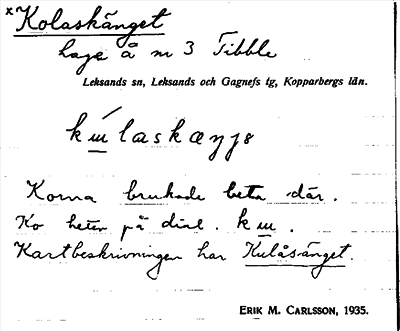 x Kolaskänget
hage å nr 3 Tibble
Leksands sn, Leksands och Gagnefs tg, Kopparbergs län.
Korna brukade beta där.
Ko heter på dial. kɯ.
Kartbeskrivningen har Kulåsänget.
ERIK M. CARLSSON, 1935.